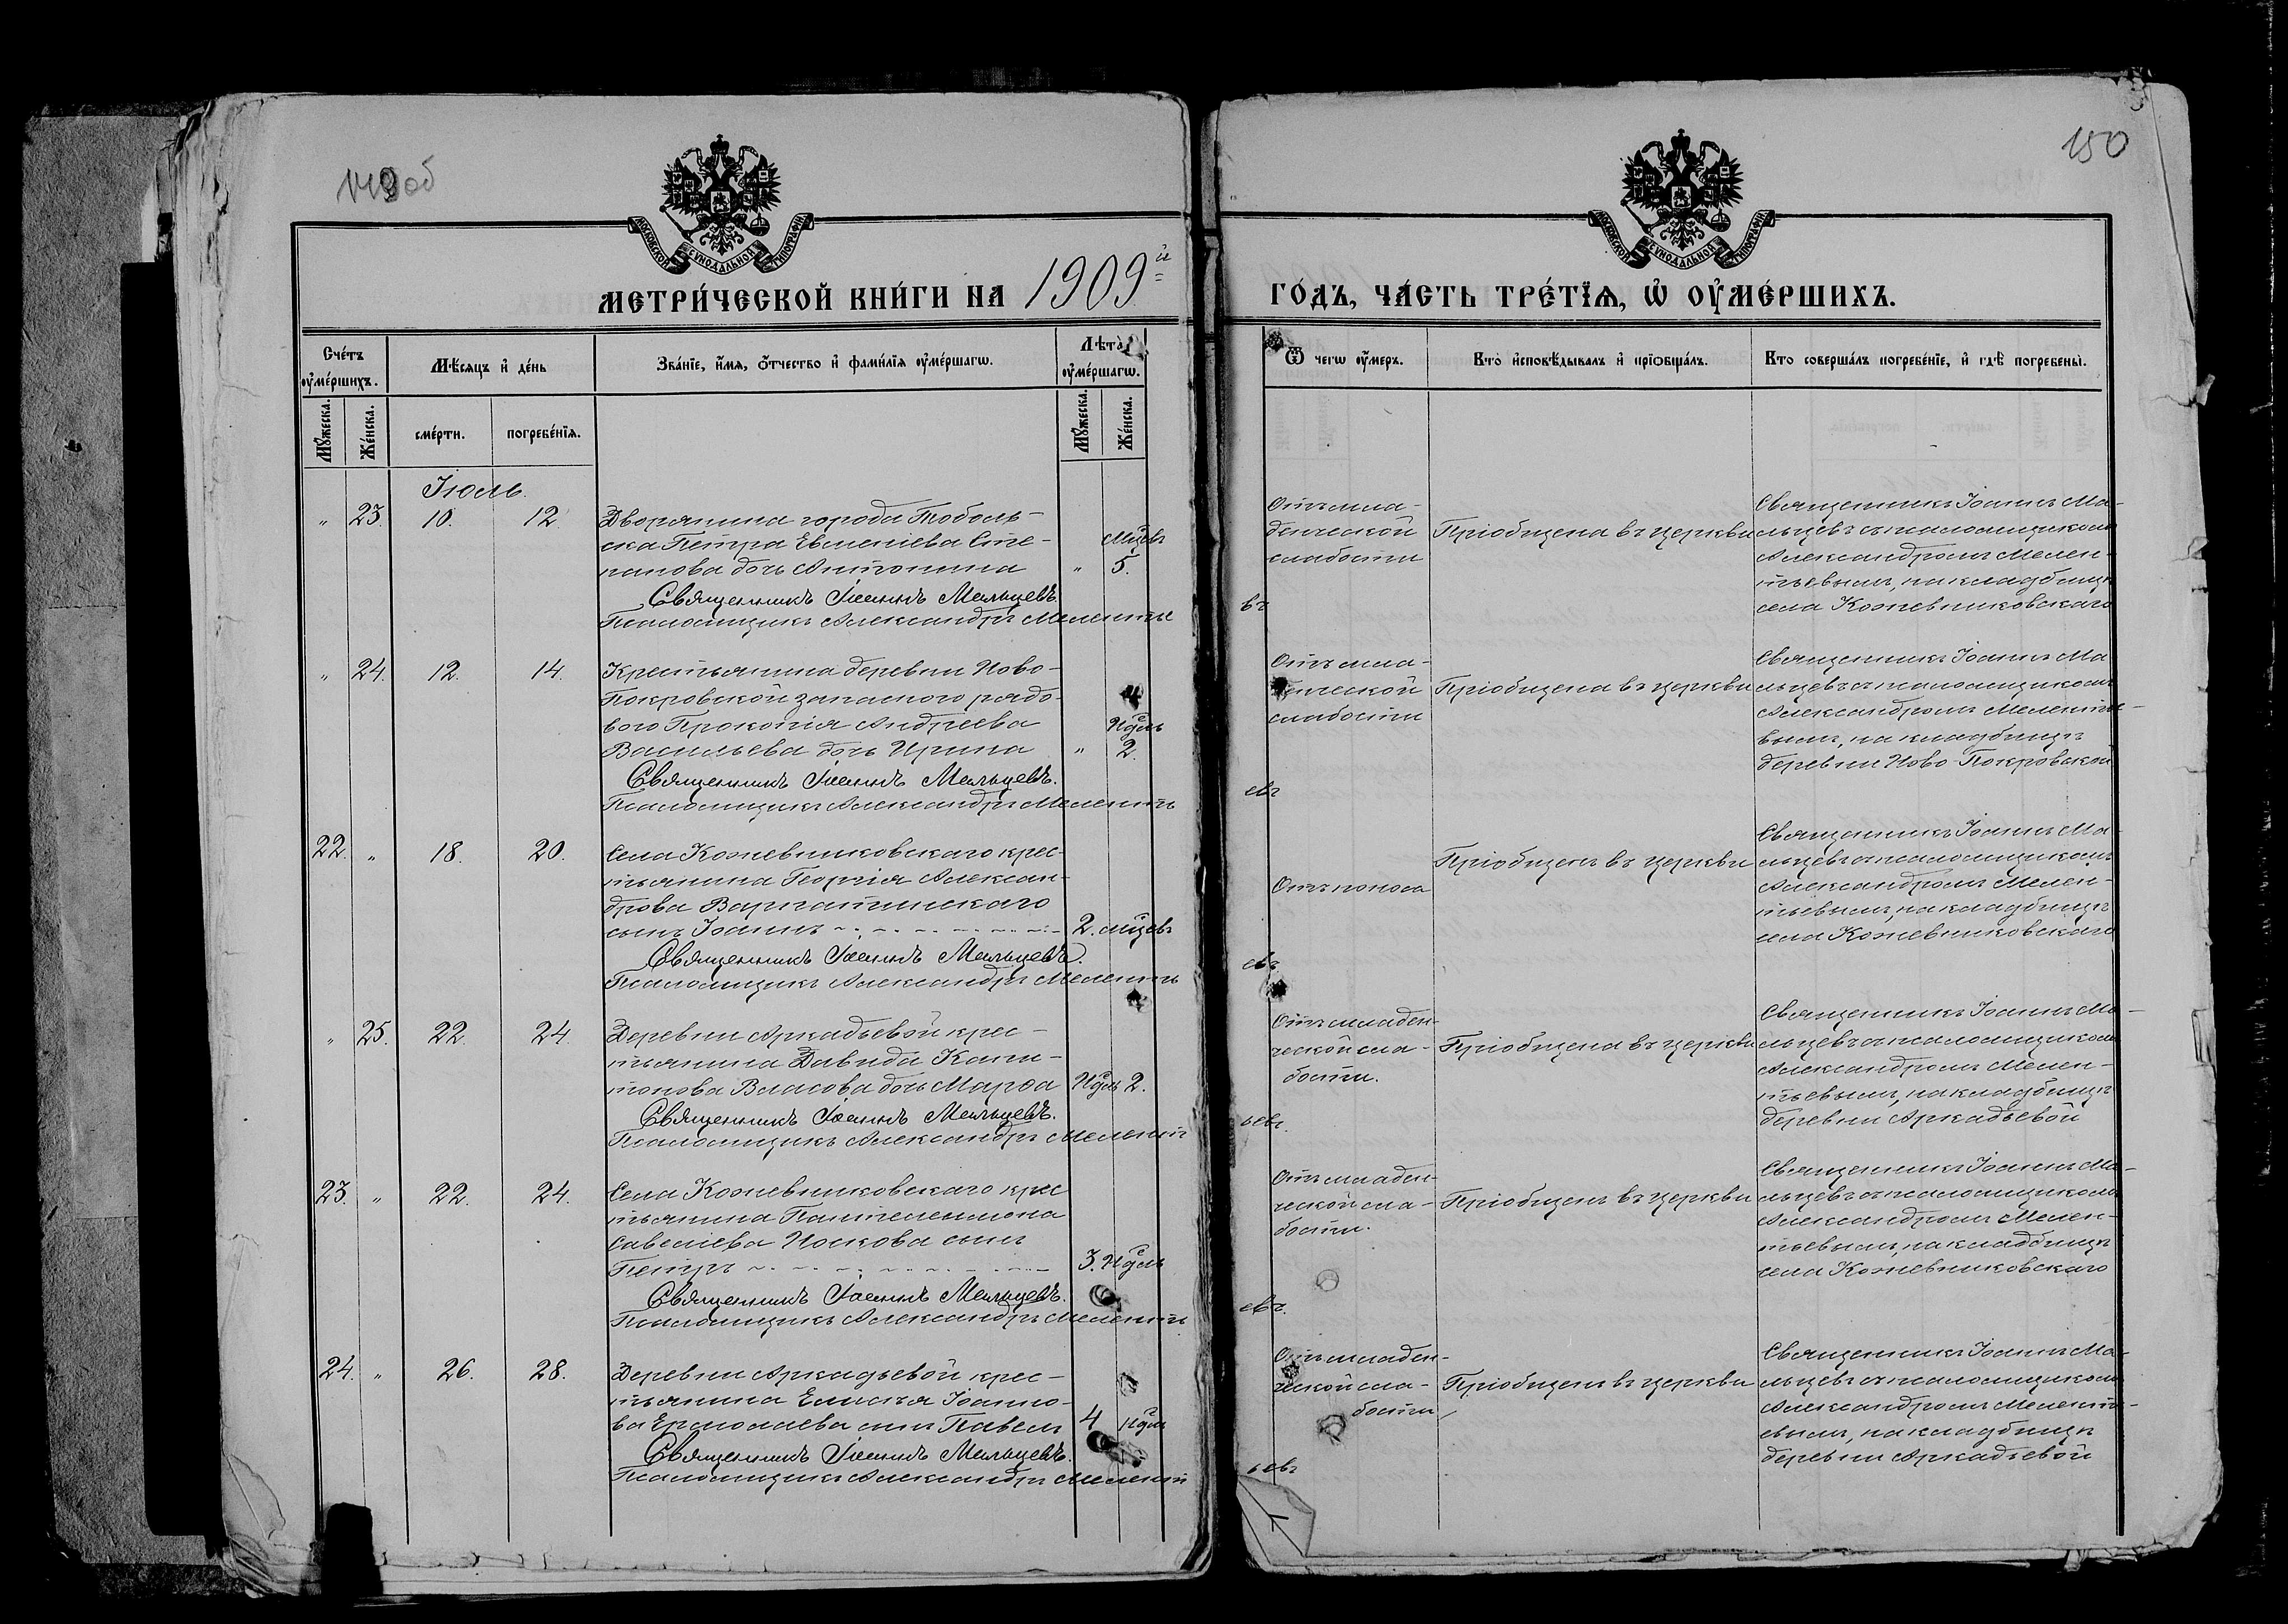 149об
МОСКОВСКОЙ СѴНОДАЛЬНОЙ ТИПОГРАФІИ
МЕТРИ́ЧЕСКОЙ КНИ́ГИ НА 1909й
Сче́тъ ᲂу҆ме́ршихъ.
Мѣ́сяцъ и҆ де́нь
Зва́нїе, и҆́мѧ, ѻ҆́тчество и҆ фами́лїѧ ᲂу҆ме́ршагѡ.
Лѣ́та ᲂу҆ме́ршагѡ.
Мꙋ́жеска.
Же́нска.
сме́рти.
погребе́нїѧ.
Мꙋ́жеска.
Же́нска.
Іюль.
„ 23. 10. 12.
Дворянина города Тоболь-
ска Петра Евменіева Сте-
панова дочь Антонина „ Мцевъ 5.
Священникъ Іоаннъ Мальцевъ.
Псаломщикъ Александръ Мелентье
„ 24. 12. 14.
Крестьянина деревни Ново-
Покровской запасного рядо-
вого Прокопія Андреева
Васильева дочь Ирина „ Нѣдѣль 2.
Священникъ Іоаннъ Мальцевъ.
Псаломщикъ Александръ Мелентъ
22. „ 18. 20.
Села Кожевниковскаго крес-
тьянина Георгія Алексан-
дрова Варгатинскаго
сынъ Іоаннъ 2. мцевъ
Священникъ Іоаннъ Мальцевъ.
Псаломщикъ Александръ Мелентъ
„ 25. 22. 24.
Деревни Аркадьевой крес-
тьянина Давида Капи-
тонова Власова дочь Марѳа Нѣдѣль 2.
Священникъ Іоаннъ Мальцевъ.
Псаломщикъ Александръ Мелент
23. „ 22. 24.
Села Кожевниковскаго крес
тьянина Пантелеимона
Савеліева Носкова сынъ
Петръ 3. Нѣдѣль
Священникъ Іоаннъ Мальцевъ.
Псаломщикъ Александръ Мелентъ
24. „ 26. 28.
Деревни Аркадьевой крес-
тьянина Елисѣя Іоанно-
ва Ермолаева сынъ Павелъ 4 нѣдѣль
Священникъ Іоаннъ Мальцевъ.
Псаломщикъ Александръ Мелент
150
МОСКОВСКОЙ СѴНОДАЛЬНОЙ ТИПОГРАФІИ
ГО́ДЪ, ЧА́СТЬ ТРЕ́ТЇѦ, Ѡ҆ ᲂУ҆МЕ́РШИХЪ.
Ѿ чегѡ ᲂу҆́меръ.
Кто̀ и҆сповѣ́дывалъ и҆ прїѻбща́лъ.
Кто соверша́лъ погребе́нїе, и҆ гдѣ̀ погребены̀.
Отъ мла-
денческой
слабости
Пріобщена въ церкви
Священникъ Іоаннъ Ма-
льцевъ съ псаломщикомъ
Александромъ Мелен-
тьевымъ, на кладбищѣ
села Кожевниковскаго
въ
Отъ мла-
денческой
слабости
Пріобщена въ церкви
Священникъ Іоаннъ Ма
льцевъ съ псаломщикомъ
Александромъ Мелентье-
вымъ, на кладбищѣ
деревни Ново-Покровской
евъ
Отъ поноса
Пріобщенъ въ церкви
Священникъ Іоаннъ Ма-
льцевъ съ псаломщикомъ
Александромъ Мелен-
тьевымъ, на кладбищѣ
села Кожевниковскаго
евъ
Отъ младен-
ческой сла-
бости.
Пріобщена въ церкви
Священникъ Іоаннъ Ма-
льцевъ съ псаломщикомъ
Александромъ Мелен-
тьевымъ, на кладбищѣ
деревни Аркадьевой
ьевъ.
Отъ младен-
ческой сла-
бости.
Пріобщенъ въ церкви
Священникъ Іоаннъ Ма-
льцевъ съ псаломщикомъ
Александромъ Мелен-
тьевымъ, на кладбищѣ
села Кожевниковскаго
евъ.
Отъ младен-
ческой сла-
бости
Пріобщенъ въ церкви
Священникъ Іоаннъ Ма-
льцевъ съ псаломщикомъ
Александромъ Мелентьь-
евымъ, на кладбищѣ
деревни Аркадьевой
ьевъ